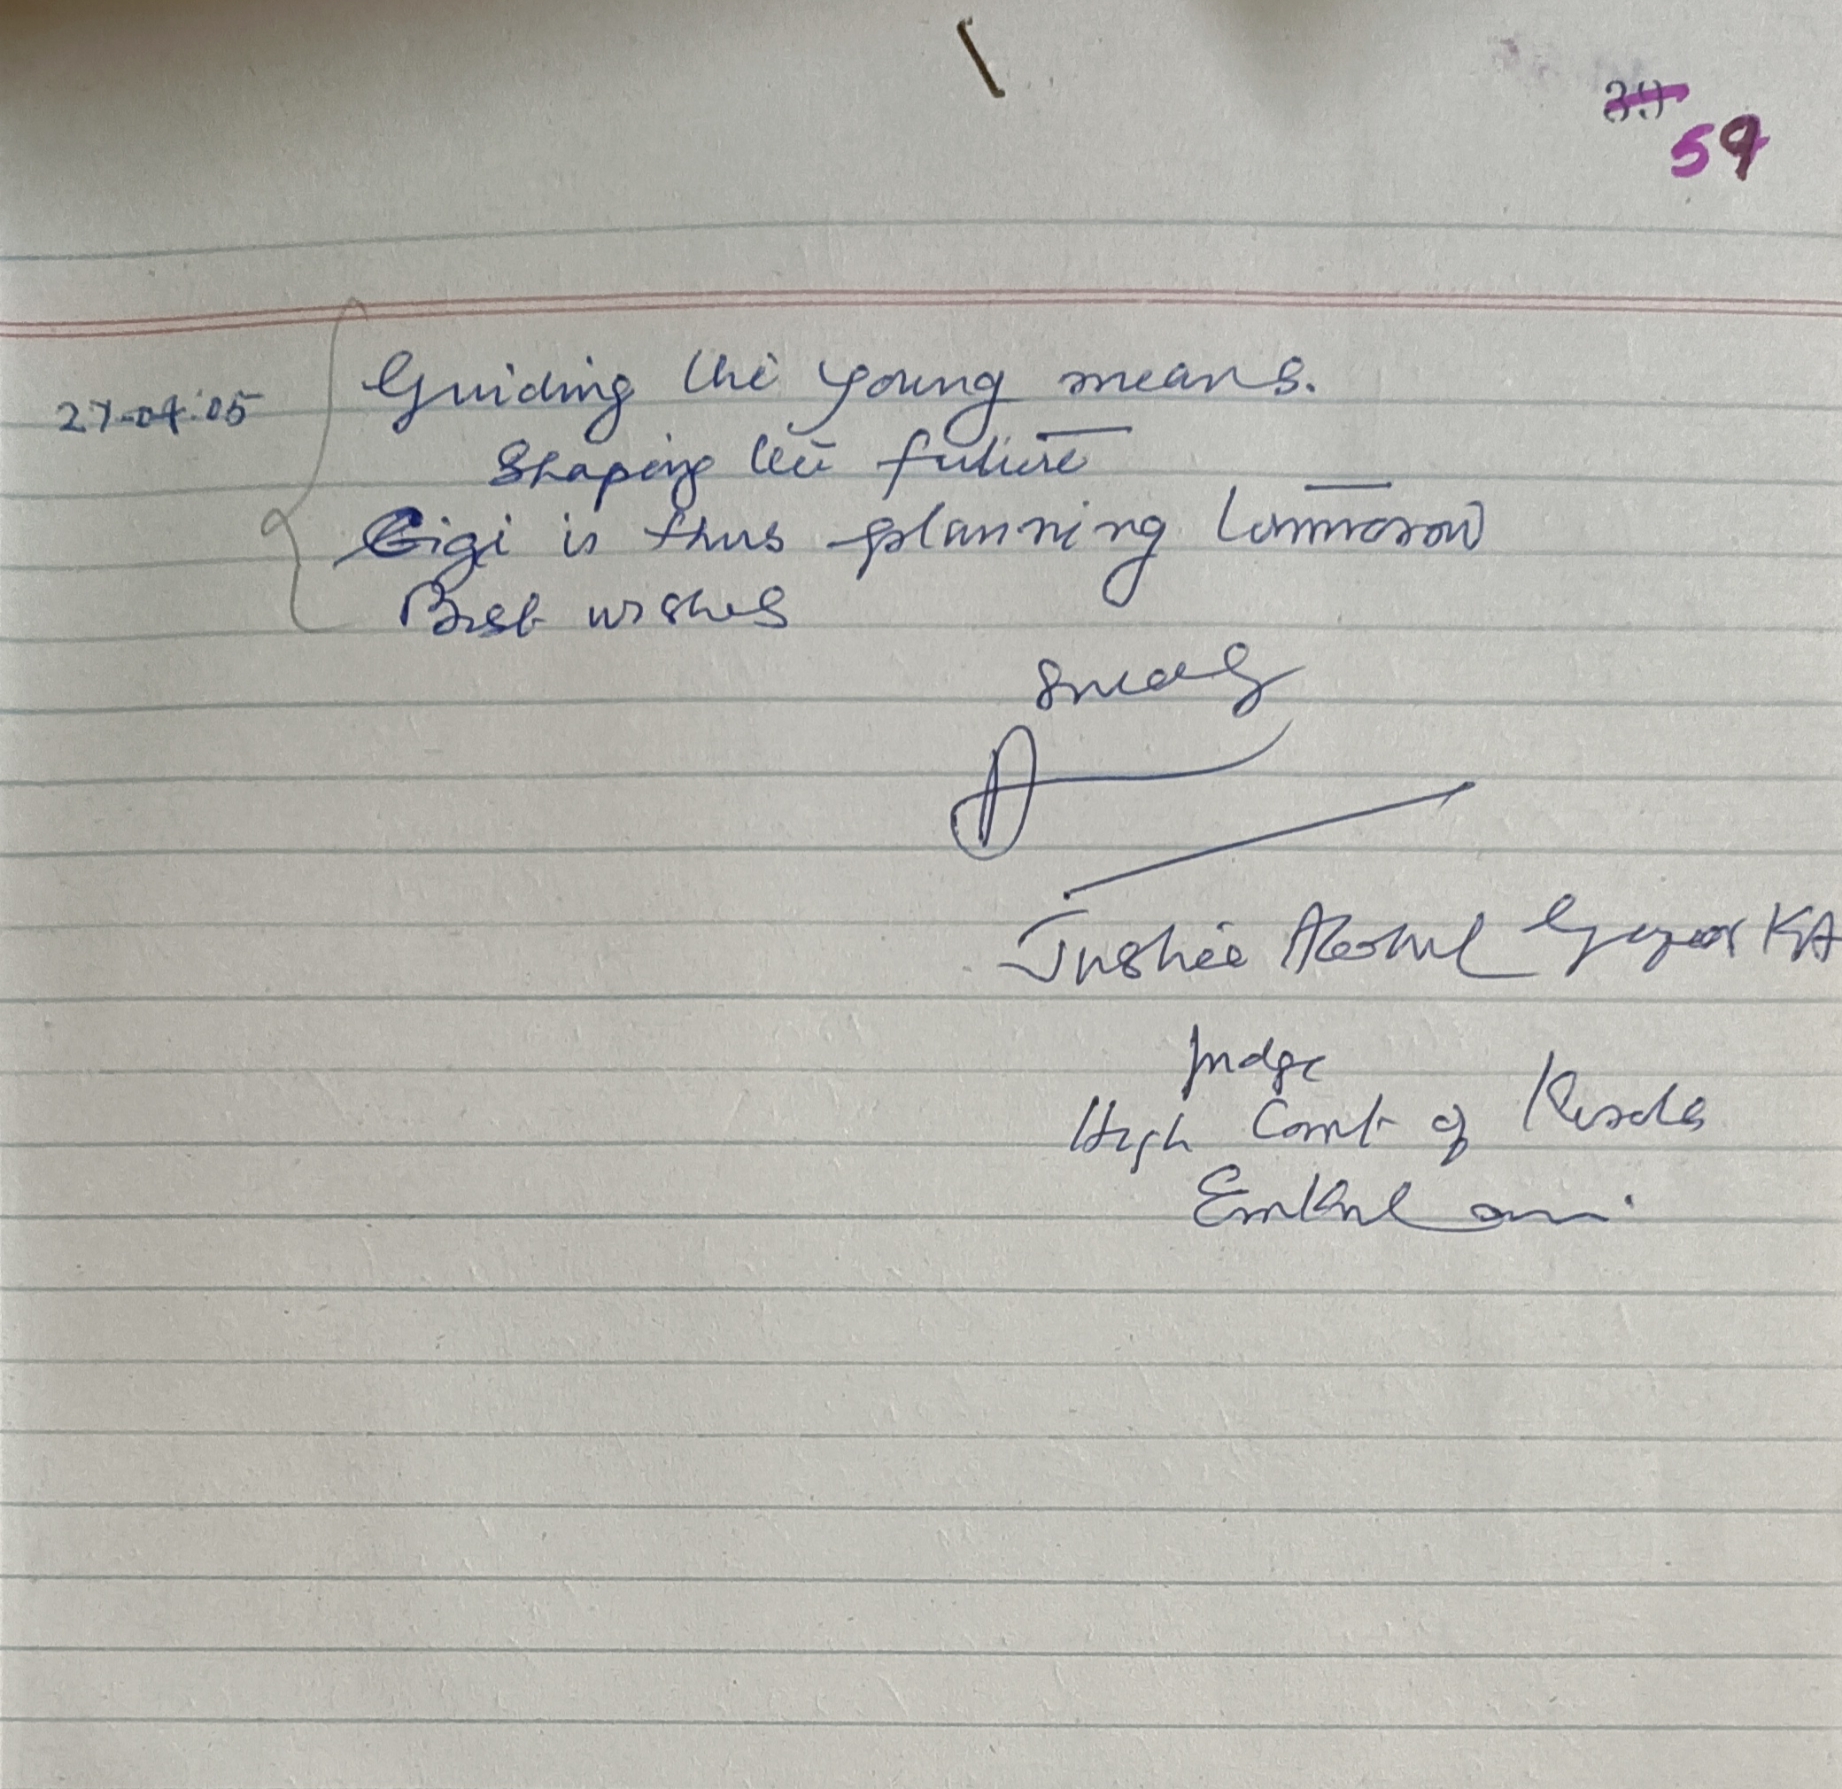 39
59
27-04-05
Guiding the young means.
Shaping the future
Gigi is thus planning tommorow
Best wishes
Justice Abdul Gafoor KA
Judge
High Court of Kerala
Ernkulam.